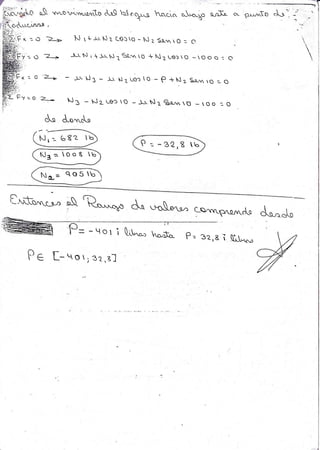 cuando el movimiento del bloque hacia abajo este a punto de
producirse.
ΣFx = 0 → N₁ + µ N₂ cos10 - N₂ sen10 = 0
ΣFy = 0 → µ N₁ + µ N₂ sen10 + N₂ cos10 - 1000 = 0
ΣFx = 0 → - µ N₃ - µ N₂ cos10 - P + N₂ sen10 = 0
ΣFy = 0 → N₃ - N₂ cos10 - µ N₂ sen10 - 100 = 0
de donde
N₁ = 682 lb
P = -32,8 lb
N₃ = 1008 lb
N₂ = 905 lb
Entonces el Rango de valores comprende desde
P = -401 i libras hasta P = 32,8 i libras
P ∈ [-401; 32,8]